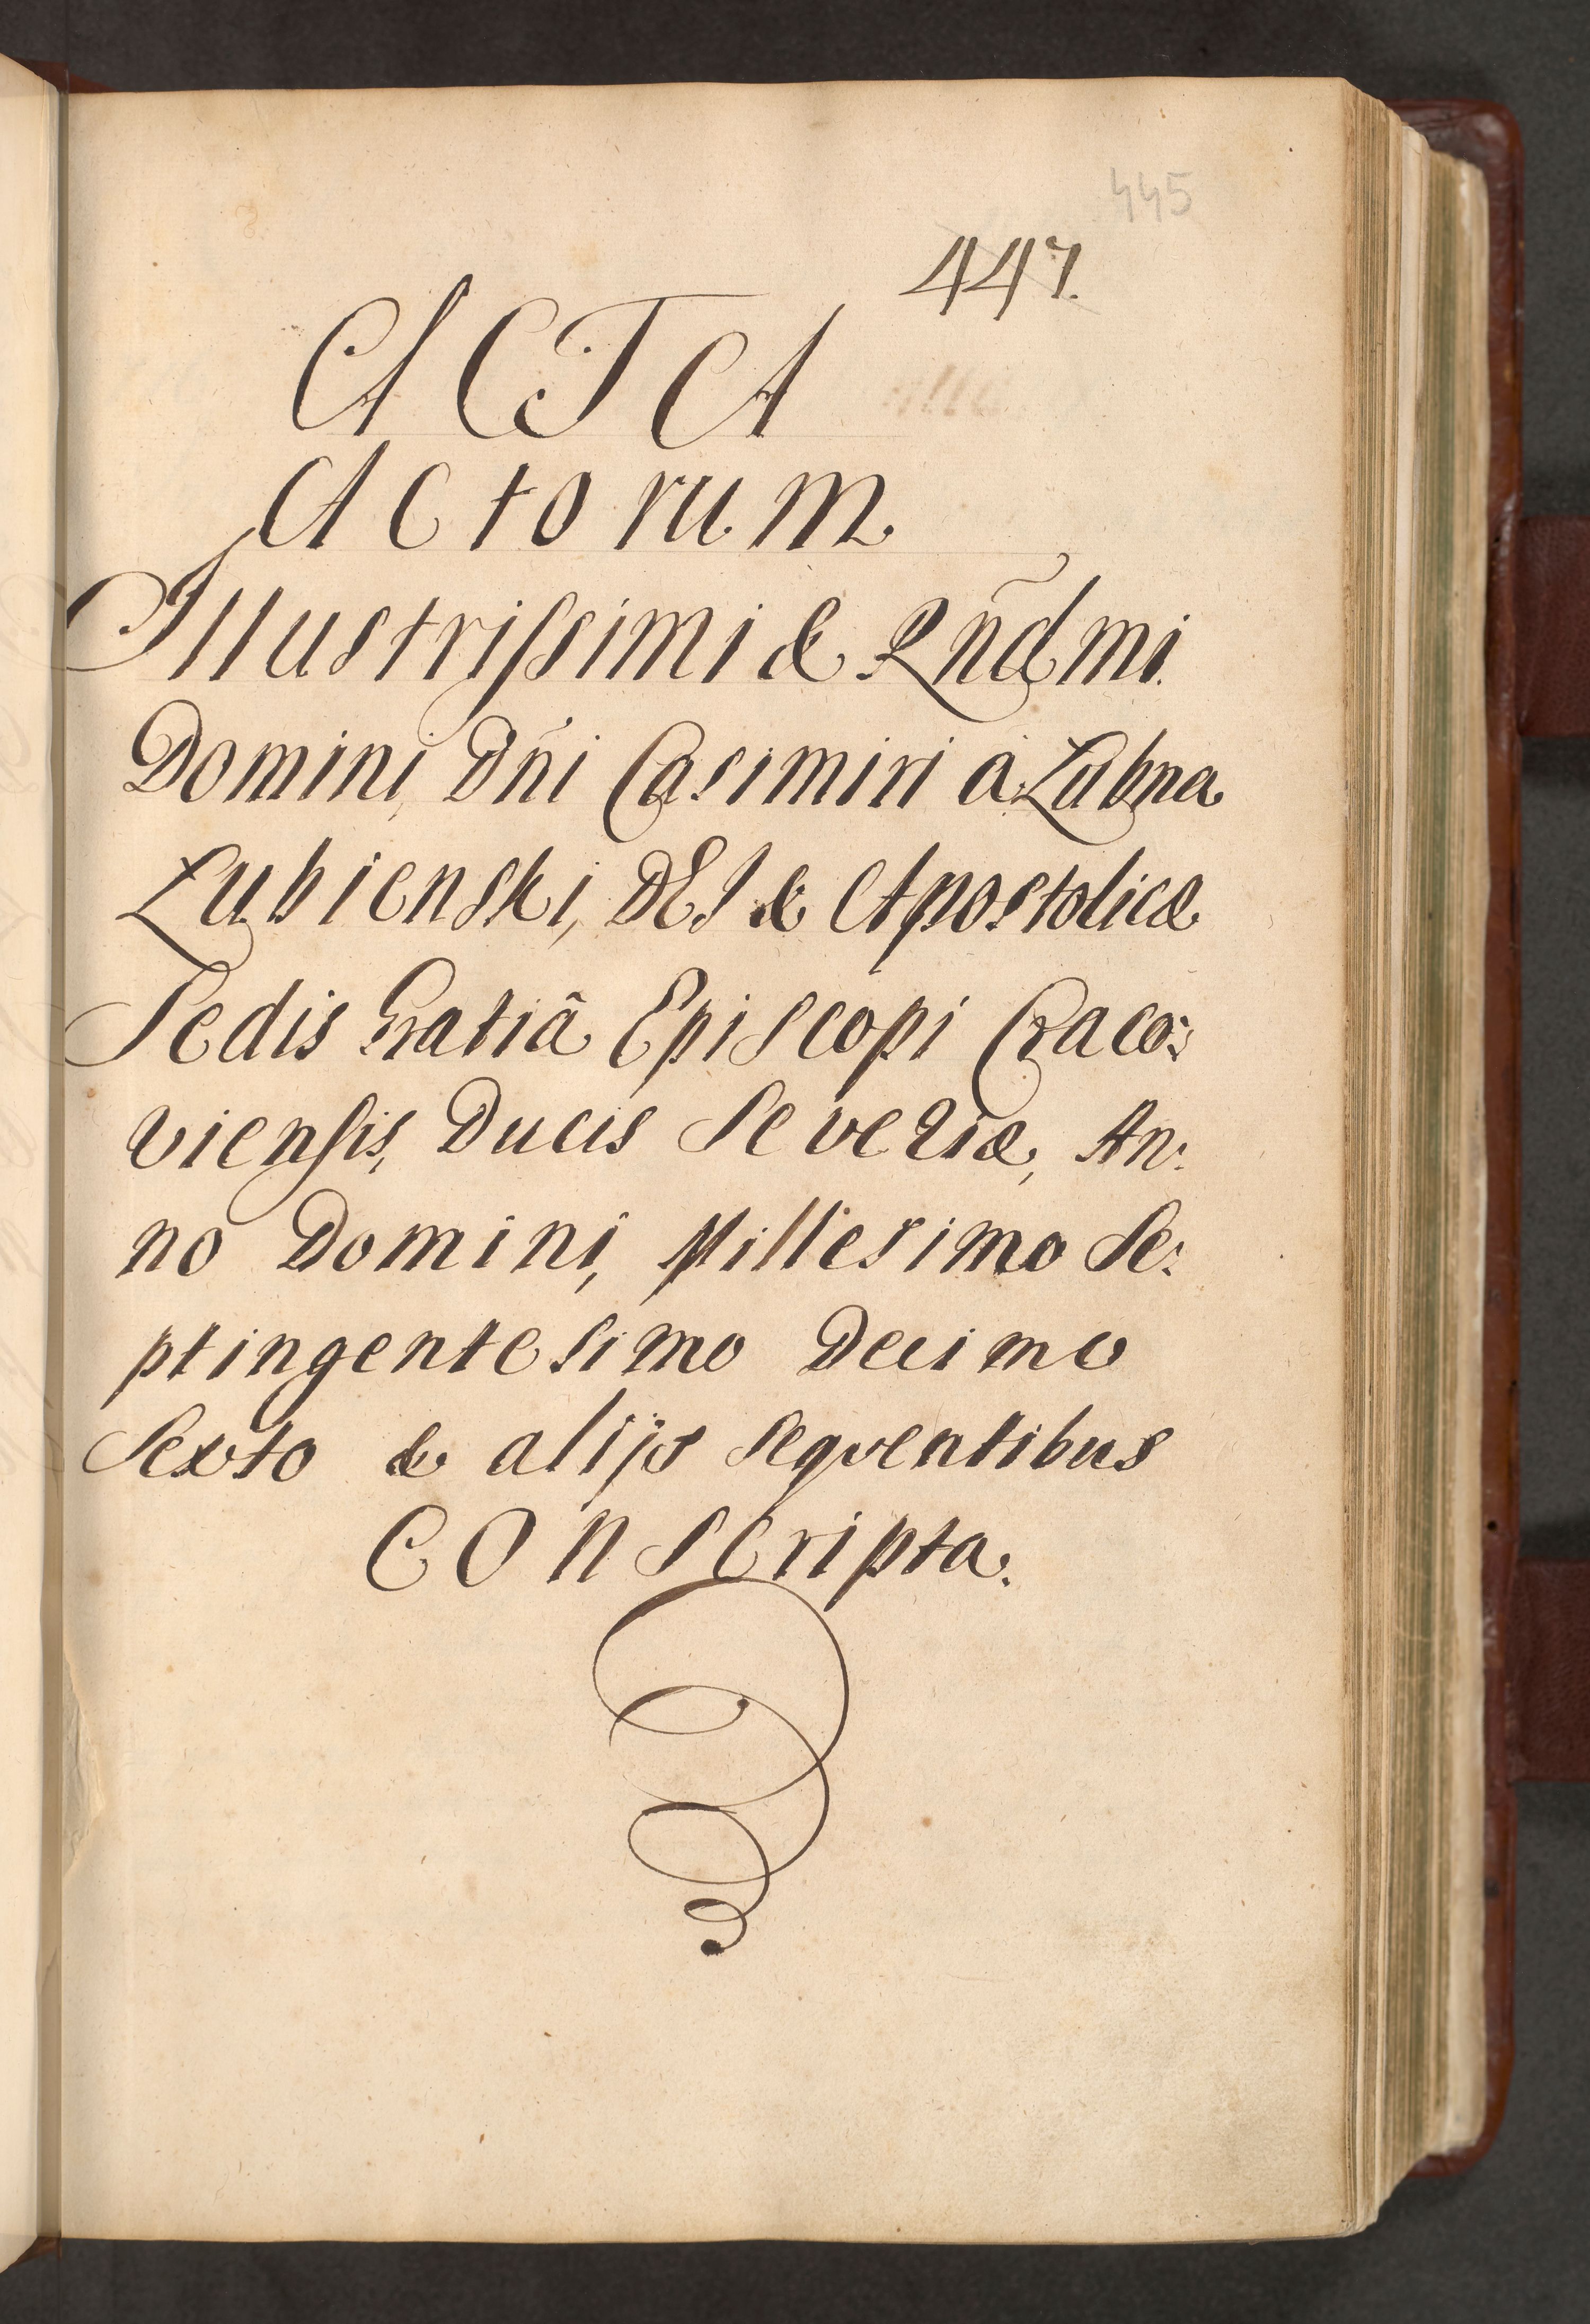 445
447.
ACTA
Actorum
Illustrissimi & Rñdmi
Domini, Dñi Casimiri à Łubna
Łubienski, DEI & Apostolicæ
Sedis Gratiâ Episcopi Craco:
viensis, Ducis Severiæ, An:
no Domini, Millesimo Se:
ptingentesimo Decimo
Sexto & alijs seqventibus
Conscripta.